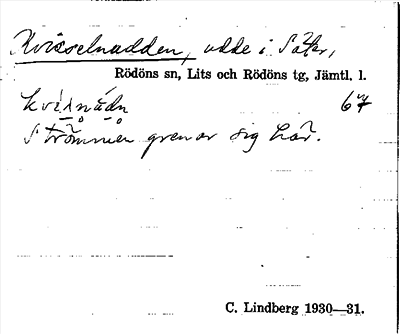 Kvisselnadden, udde i Säter,
Rödöns sn, Lits och Rödöns tg, Jämtl. l.
67
Strömmen grenar sig här.
C. Lindberg 1930—31.